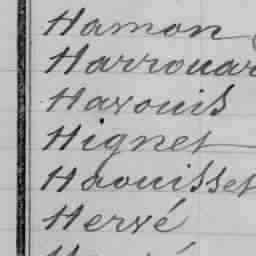 Hamon
Harrouar
Havouis
Hignet
Haouisset
Hervé